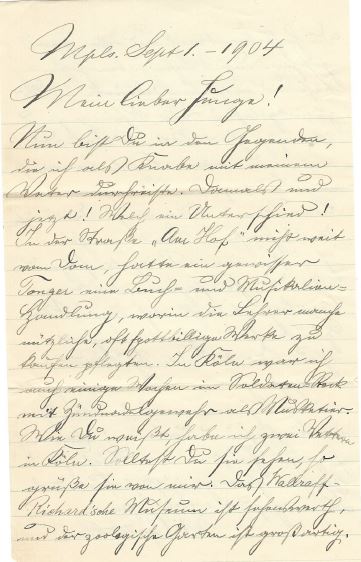 Mpls. Sept 1. - 1904
Mein lieber Junge!
Nun bist Du in den Gegenden,
die ich als Knabe mit meinem
Vater durchreiste. Damals und
jetzt! Welch ein Unterschied!
In der Straße „Am Hof" nicht weit
vom Dom, hatte ein gewisser
Tonger eine Buch- und Musikalien-
Handlung, worin die Lehrer manche
nützliche, oft spottbillige Werke zu
kaufen pflegten. In Köln war ich
auch einige Wochen in Soldaten-Rock
mit Zündnadelgewehr als Musketier.
Wie Du weißt, habe ich zwei Vettern
in Köln. Solltest Du sie sehen, so
grüße sie von mir. Das Wallraff-
Richard'sche Museum ist sehenswerth,
und der zoologische Garten ist großartig.